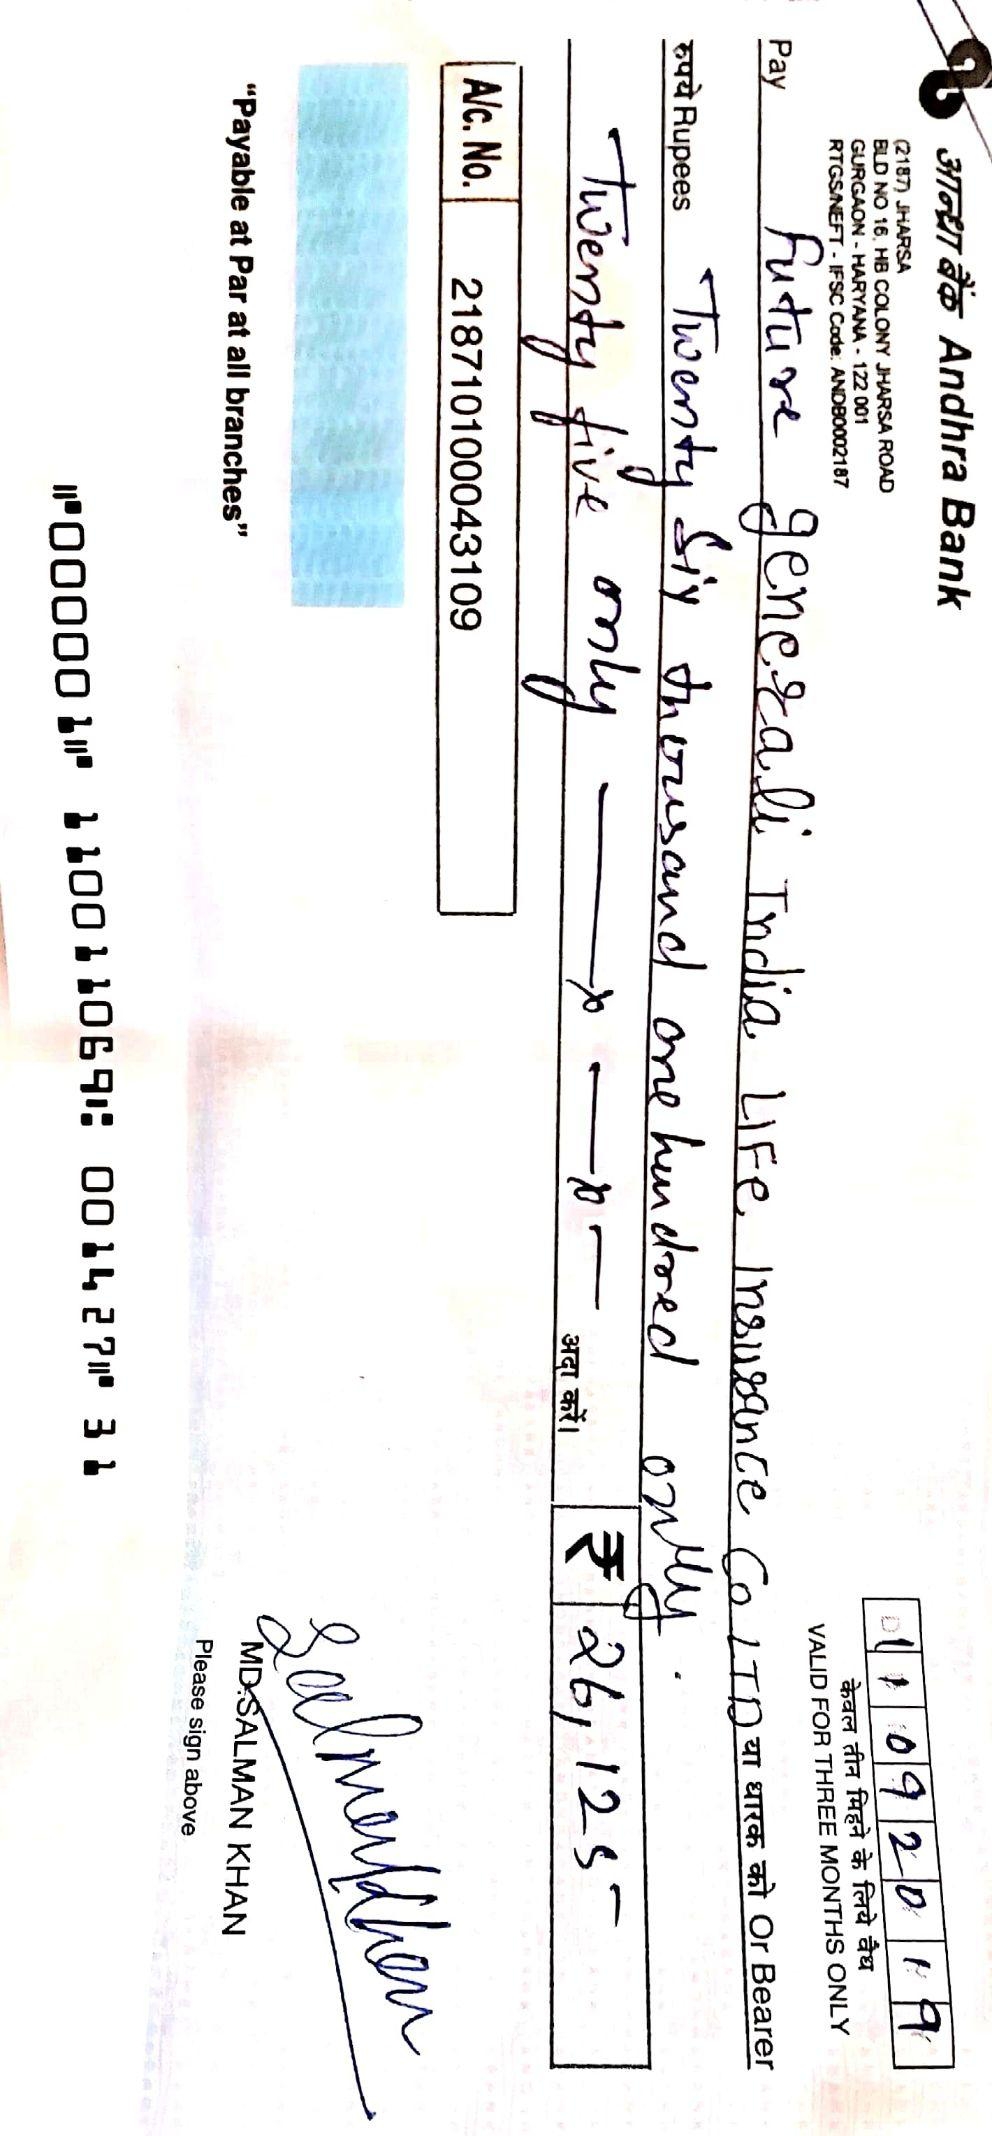 आन्ध्रा बैंक Andhra Bank
(2187) JHARSA
BLD NO 16, HB COLONY JHARSA ROAD
GURGAON - HARYANA - 122 001
RTGS/NEFT - IFSC Code: ANDB0002187
11092019
केवल तीन मिहने के लिये वैध
VALID FOR THREE MONTHS ONLY
Pay Future generali India LIFe Insurance Co LTD या धारक को Or Bearer
रुपये Rupees Twenty Six thousand one hundred only
Twenty five only अदा करें। ₹ 26,125-
A/c. No. 218710100043109
"Payable at Par at all branches"
Salman Khan
MD.SALMAN KHAN
Please sign above
⑈000001⑈ 110011069⑆ 001427⑈ 31